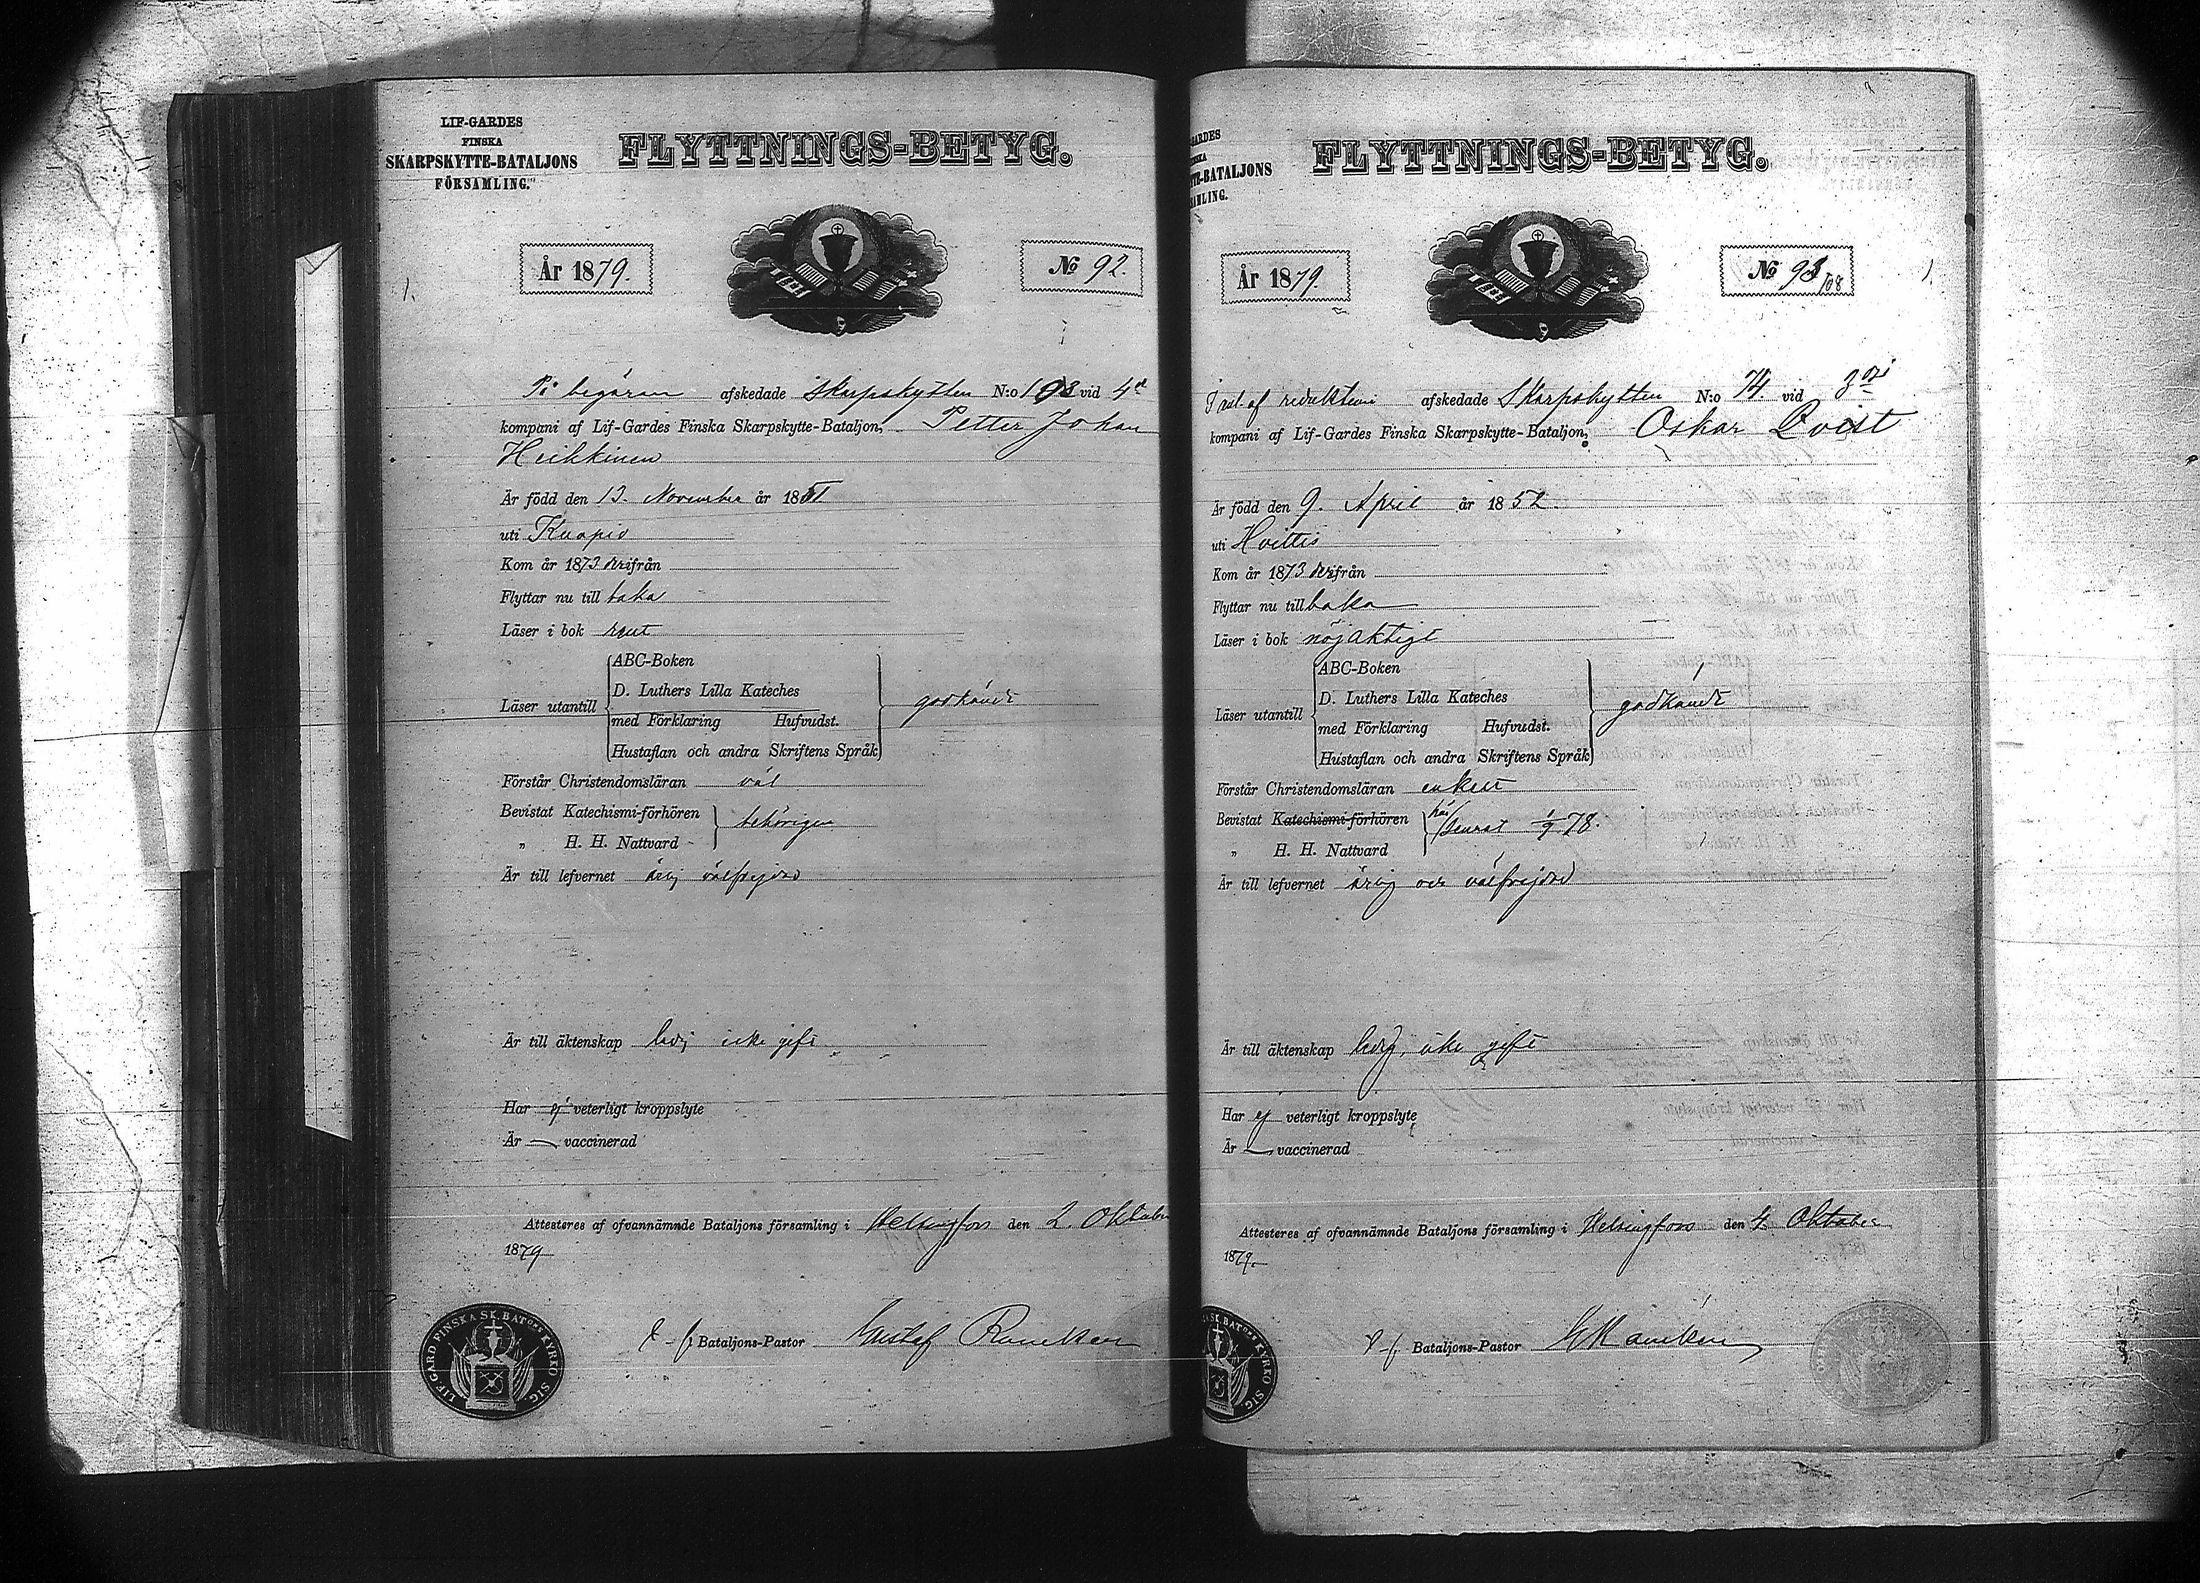 LIF-GARDES
FINSKA
SKARPSKYTTE-BATALJONS
FÖRSAMLING.
FLYTTNINGS-BETYG.
År 1879.
No 92.
På begäran afskedade Skarpskytten N:o 193 vid 4de
kompani af Lif-Gardes Finska Skarpskytte-Bataljon, Petter Johan
Heikkinen
Är född den 13. November år 1851
uti Kuopio
Kom år 1873 derifrån
Flyttar nu till baka
Läser i bok rent
ABC-Boken
D. Luthers Lilla Kateches
Läser utantill med Förklaring Hufvudst. godkändt
Hustaflan och andra Skriftens Språk
Förstår Christendomsläran väl
Bevistat Katechismi-förhören behörigen
„ H. H. Nattvard
Är till lefvernet ärlig välfrejdad
Är till äktenskap ledig icke gift
Har ej veterligt kroppslyte
Är — vaccinerad
Attesteras af ofvannämnde Bataljons församling i Helsingfors den 2. Oktober
1879
Bataljons-Pastor Gustaf
LIF-GARD FINSKA SK. BATONS KYRKO SIG.
GARDES
SKA
TTE-BATALJONS
AMLING.
FLYTTNINGS-BETYG.
År 1879.
No 93/108
af reduktion afskedade Skarpskytten N:o 74. vid 3dje
kompani af Lif-Gardes Finska Skarpskytte-Bataljon, Oskar Qvist
Är född den 9. April år 1852.
uti Hvittis
Kom år 1873 derifrån
Flyttar nu till baka
Läser i bok nöjaktigt
ABC-Boken
D. Luthers Lilla Kateches
Läser utantill med Förklaring Hufvudst. godkändt
Hustaflan och andra Skriftens Språk
Förstår Christendomsläran enkelt
Bevistat Katechismi-förhören här senast 1/9 78.
„ H. H. Nattvard
Är till lefvernet ärlig och välfrejdad
Är till äktenskap ledig, icke gift
Har ej veterligt kroppslyte
Är — vaccinerad
Attesteras af ofvannämnde Bataljons församling i Helsingfors den 4. Oktober
1879.
Bataljons-Pastor
SK. BATONS KYRKO SIG.